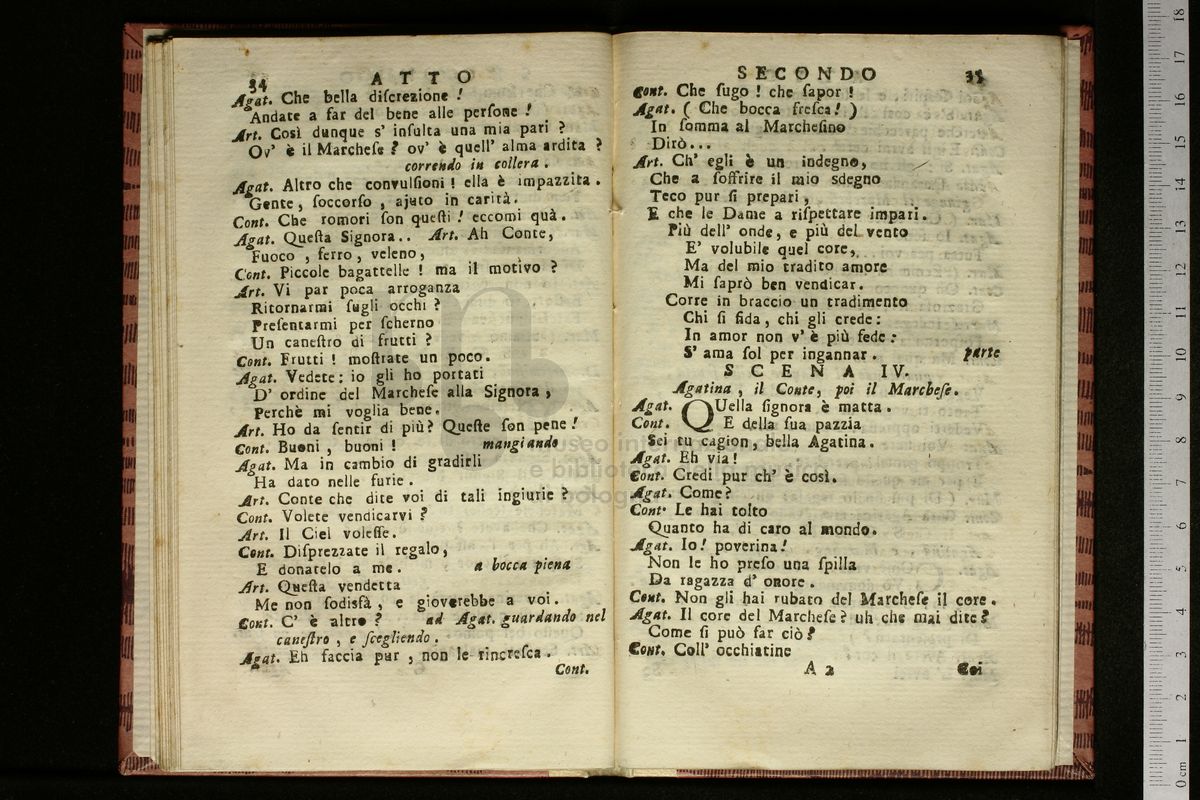 34 ATTO
Agat. Che bella diſcrezione !
Andate a far del bene alle perſone !
Art. Così dunque s' inſulta una mia pari ?
Ov' è il Marcheſe ? ov' è quell' alma ardita ?
correndo in collera .
Agat. Altro che convulſioni ! ella è impazzita .
Gente , ſoccorſo , ajuto in carità .
Cont. Che romori ſon queſti ! eccomi quà .
Agat. Queſta Signora .. Art. Ah Conte,
Fuoco , ferro , veleno ,
Cont. Piccole bagattelle ! ma il motivo ?
Art. Vi par poca arroganza
Ritornarmi ſugli occhi ?
Preſentarmi per ſcherno
Un caneſtro di frutti ?
Cont. Frutti ! moſtrate un poco .
Agat. Vedete : io gli ho portati
D' ordine del Marcheſe alla Signora ,
Perchè mi voglia bene .
Art. Ho da ſentir di più? Queſte ſon pene !
Cont. Buoni , buoni ! mangiando
Agat. Ma in cambio di gradirli
Ha dato nelle furie .
Art. Conte che dite voi di tali ingiurie ?
Cont. Volete vendicarvi ?
Art. Il Ciel voleſſe .
Cont. Diſprezzate il regalo ,
E donatelo a me . a bocca piena
Art. Queſta vendetta
Me non ſodisfà , e gioverebbe a voi .
Cont. C' è altro ? ad Agat. guardando nel
caneſtro , e ſcegliendo .
Agat. Eh faccia pur , non le rincreſca .
Cont.
SECONDO 35
Cont. Che ſugo ! che ſapor !
Agat. ( Che bocca freſca ! )
In ſomma al Marcheſino
Dirò ...
Art. Ch' egli è un indegno ,
Che a ſoffrire il mio sdegno
Teco pur ſi prepari ,
E che le Dame a riſpettare impari .
Più dell' onde , e più del vento
E' volubile quel core ,
Ma del mio tradito amore
Mi ſaprò ben vendicar .
Corre in braccio un tradimento
Chi ſi fida , chi gli crede :
In amor non v' è più fede :
S' ama ſol per ingannar . parte
SCENA IV.
Agatina , il Conte, poi il Marcheſe .
Agat. QUella ſignora è matta .
Cont. E della ſua pazzia
Sei tu cagion , bella Agatina .
Agat. Eh via !
Cont. Credi pur ch' è così .
Agat. Come ?
Cont. Le hai tolto
Quanto ha di caro al mondo .
Agat. Io ! poverina !
Non le ho preſo una ſpilla
Da ragazza d' onore .
Cont. Non gli hai rubato del Marcheſe il core .
Agat. Il core del Marcheſe ? uh che mai dite ?
Come ſi può far ciò ?
Cont. Coll' occhiatine
A 2 Coi